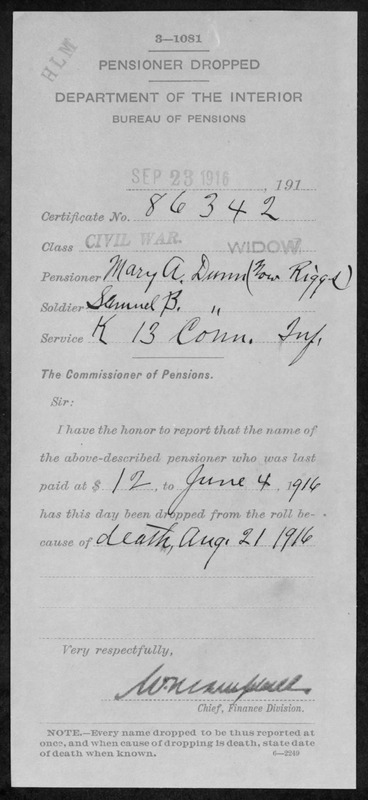 3—1081
HLM
PENSIONER DROPPED
DEPARTMENT OF THE INTERIOR
BUREAU OF PENSIONS
SEP 23 1916, 191
Certificate No. 86342
Class CIVIL WAR. WIDOW
Pensioner Mary A. Dunn (now Riggs)
Soldier Samuel B. "
Service K 13 Conn. Inf.
The Commissioner of Pensions.
Sir:
I have the honor to report that the name of
the above-described pensioner who was last
paid at $ 12, to June 4, 1916
has this day been dropped from the roll be-
cause of death, Aug. 21 1916
Very respectfully,
Chief, Finance Division.
NOTE.—Every name dropped to be thus reported at
once, and when cause of dropping is death, state date
of death when known. 6—2240